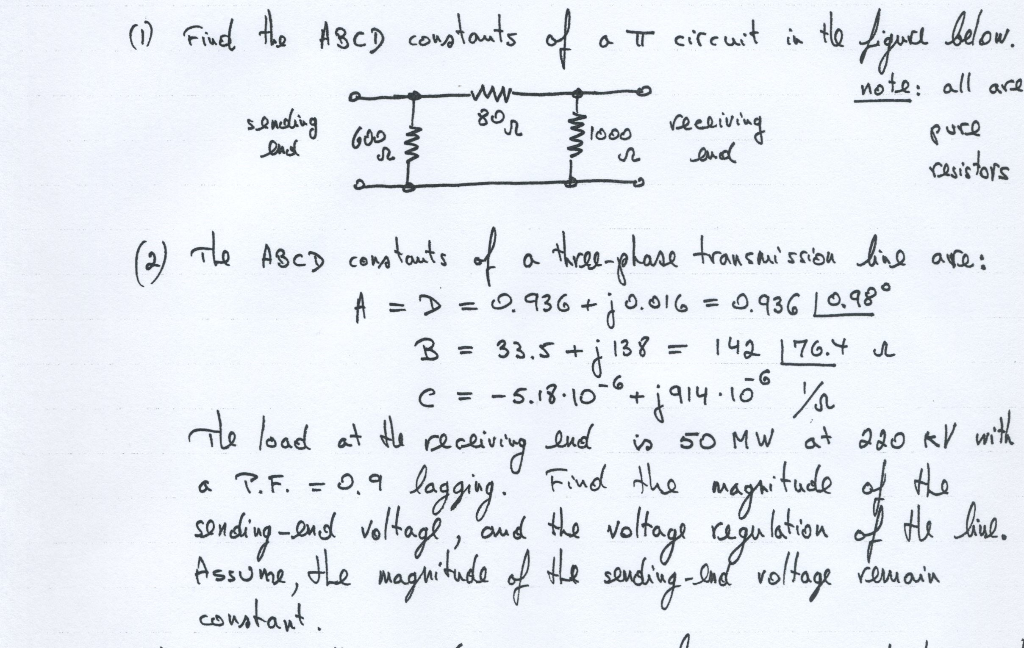 (1) Find the ABCD constants of a π circuit in the figure below.
note: all are
pure
resistors
sending
end
600
Ω
80Ω
1000
Ω
receiving
end
(2) The ABCD constants of a three-phase transmission line are:
A = D = 0.936 + j0.016 = 0.936 ∠0.98°
B = 33.5 + j138 = 142 ∠76.4 Ω
C = -5.18·10⁻⁶ + j914·10⁻⁶ 1/Ω
The load at the receiving end is 50 MW at 220 kV with
a P.F. = 0.9 lagging. Find the magnitude of the
sending-end voltage, and the voltage regulation of the line.
Assume, the magnitude of the sending-end voltage remain
constant.